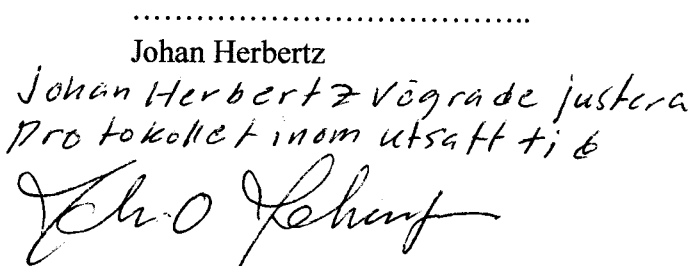 ....................................
Johan Herbertz
Johan Herbertz vägrade justera
Protokollet inom utsatt tid